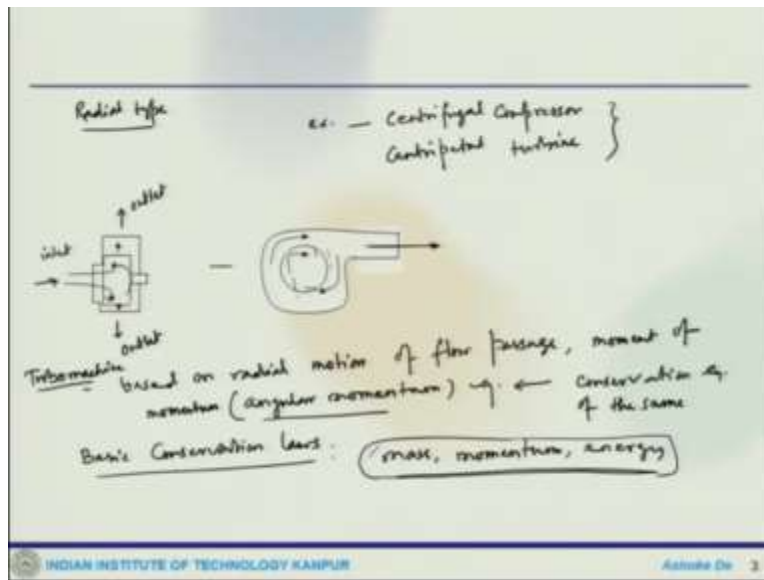 Radial type
ex. — Centrifugal Compressor
Centripetal turbine
outlet
inlet
outlet
Turbomachine = based on radial motion of flow passage, moment of
momentum (angular momentum) eq. ← conservation eq.
of the same
Basic Conservation laws : mass, momentum, energy
INDIAN INSTITUTE OF TECHNOLOGY KANPUR
Ashoke De 3